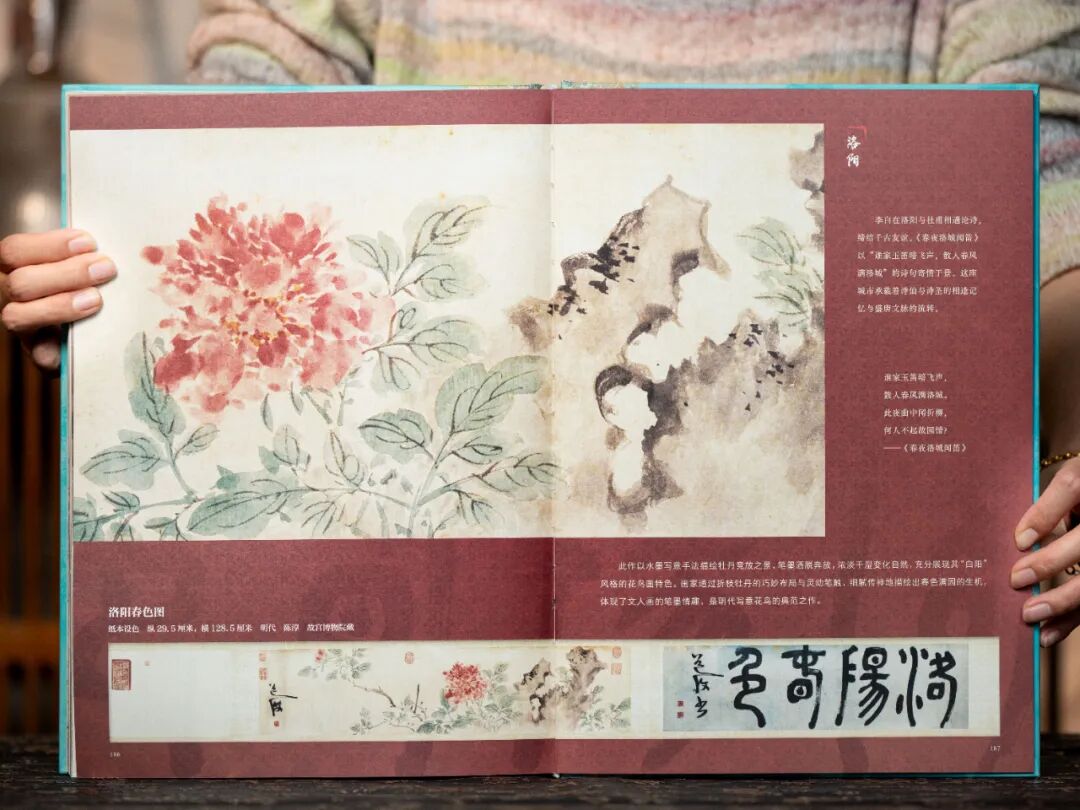 洛阳
李白在洛阳与杜甫相遇论诗，
缔结千古友谊，《春夜洛城闻笛》
以“谁家玉笛暗飞声，散入春风
满洛城”的诗句寄情于景，这座
城市承载着诗仙与诗圣的相逢记
忆与盛唐文脉的流转。
谁家玉笛暗飞声，
散入春风满洛城。
此夜曲中闻折柳，
何人不起故园情？
——《春夜洛城闻笛》
此作以水墨写意手法描绘牡丹竞放之景，笔墨洒脱奔放，浓淡干湿变化自然，充分展现其“白阳”
风格的花鸟画特色。画家透过折枝牡丹的巧妙布局与灵动笔触，细腻传神地描绘出春色满园的生机，
体现了文人画的笔墨情趣，是明代写意花鸟的典范之作。
洛阳春色图
纸本设色 纵29.5厘米，横128.5厘米 明代 陈淳 故宫博物院藏
洛陽春色
道復書
道復
186
187